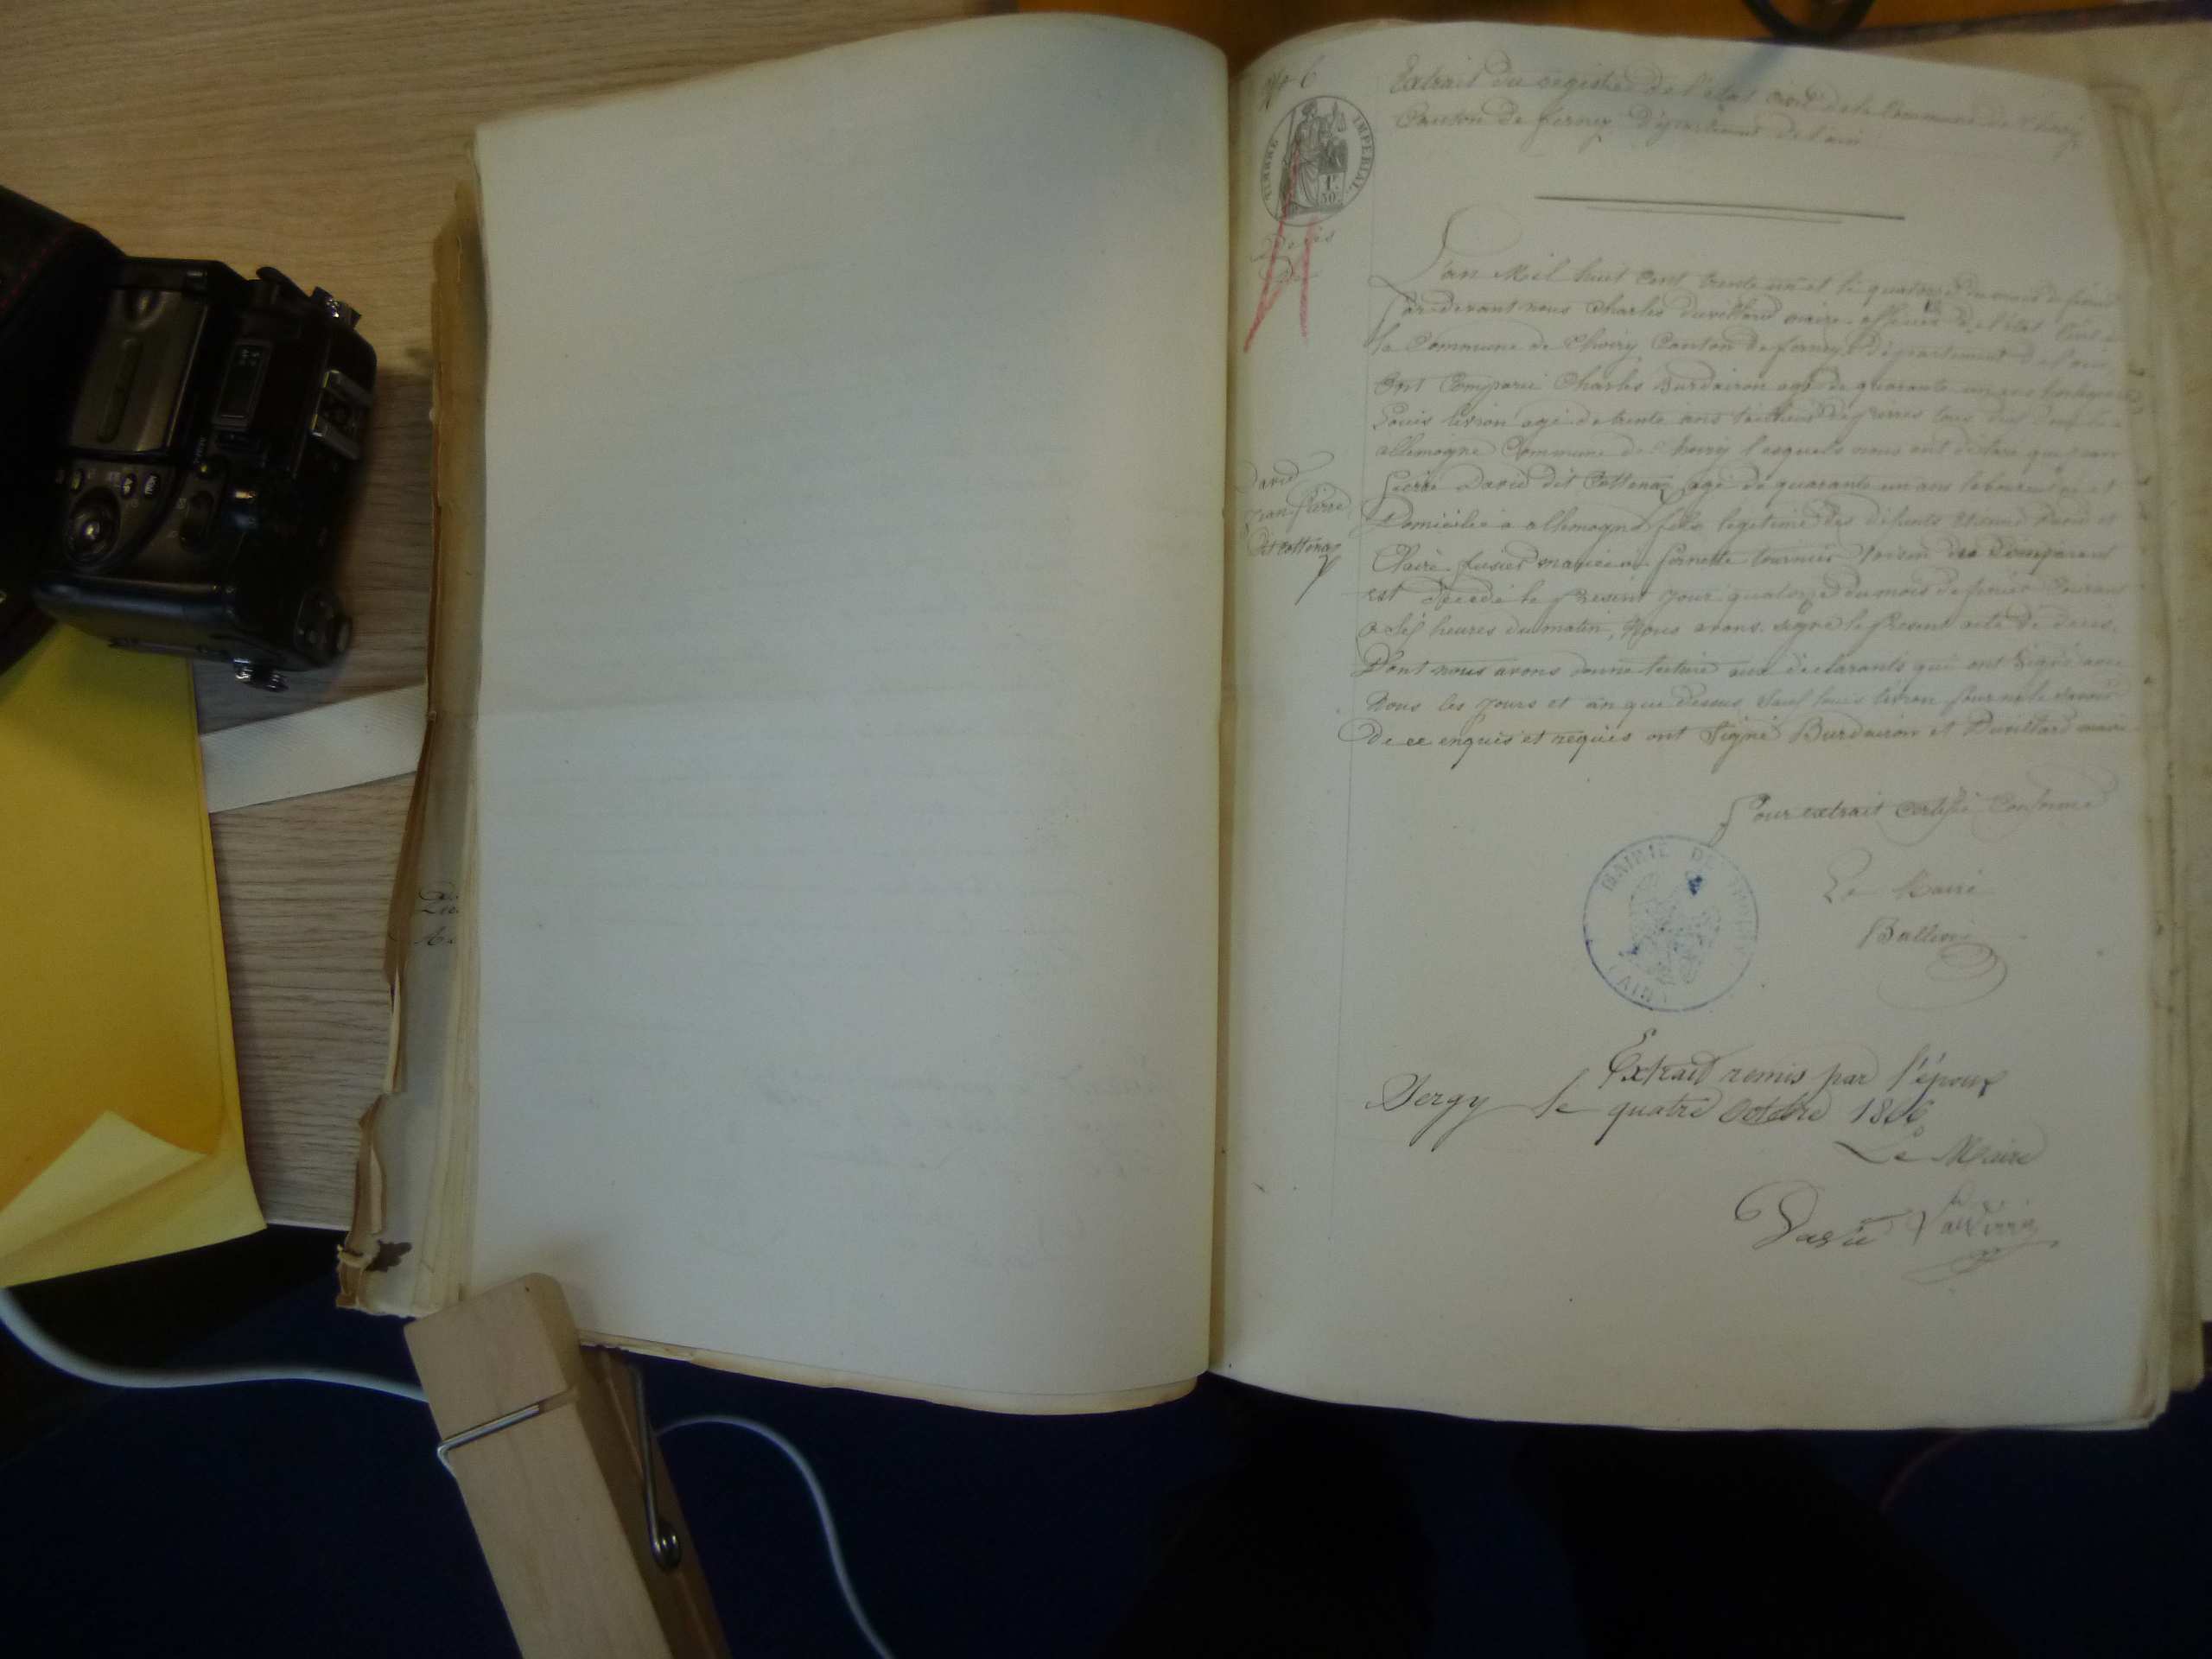 No 6
Extrait du registre de l'état civil de la Commune de Thoiry
Canton de ferney Département de l'ain
TIMBRE IMPERIAL
1F
50
L'an Mil huit Cent trente un et le quatorze du mois de fevrier
Pardevant nous Charles Duvillard maire officier de l'état Civil de
la Commune de Thoiry Canton de ferney département de l'ain
Ont Comparu Charles Burdairon agé de quarante un ans
Louis levron agé de trente ans tailleur de pierres tous deux
allemogne Commune de Thoiry lesquels nous ont déclaré que jean
pierre David dit Cottenaz agé de quarante un ans laboureur né et
Domicilié a allemogne fils légitime des défunts Etienne David et
Claire fusier marié a pernette tournier Voisin des Comparant
est décédé le présent jour quatorze du mois de fevrier Courant
a six heures du matin, Nous avons signé le present acte de deces.
Dont nous avons donné lecture aux déclarants qui ont signé avec
Nous les jours et an que dessus sauf louis levron pour ne le savoir
de ce enquis et requis ont signé Burdairon et Duvillard maire
David
jean pierre
dit cottenaz
Pour extrait Certifié Conforme
Le Maire
MAIRIE DE THOIRY
(AIN)
Extrait remis par l'époux
Sergy le quatre Octobre 1866
Le Maire